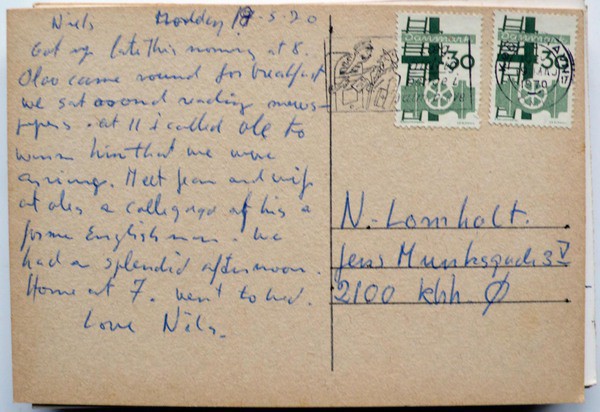 Niels Monday 18-5-70
Got up late this morning at 8.
Olao came round for breakfast
we sat around reading news-
papers. at 11 i called ole to
warn him that we were
arriving. Meet Jean and wife
at oles a collegage of his a
forme Englishman. we
had a splendid afternoon.
Home at 7. went to bed.
Love Niels.
Danmark
30
Danmark
30
N. Lomholt.
Jens Munksgade 3 V
2100 kbh. Ø